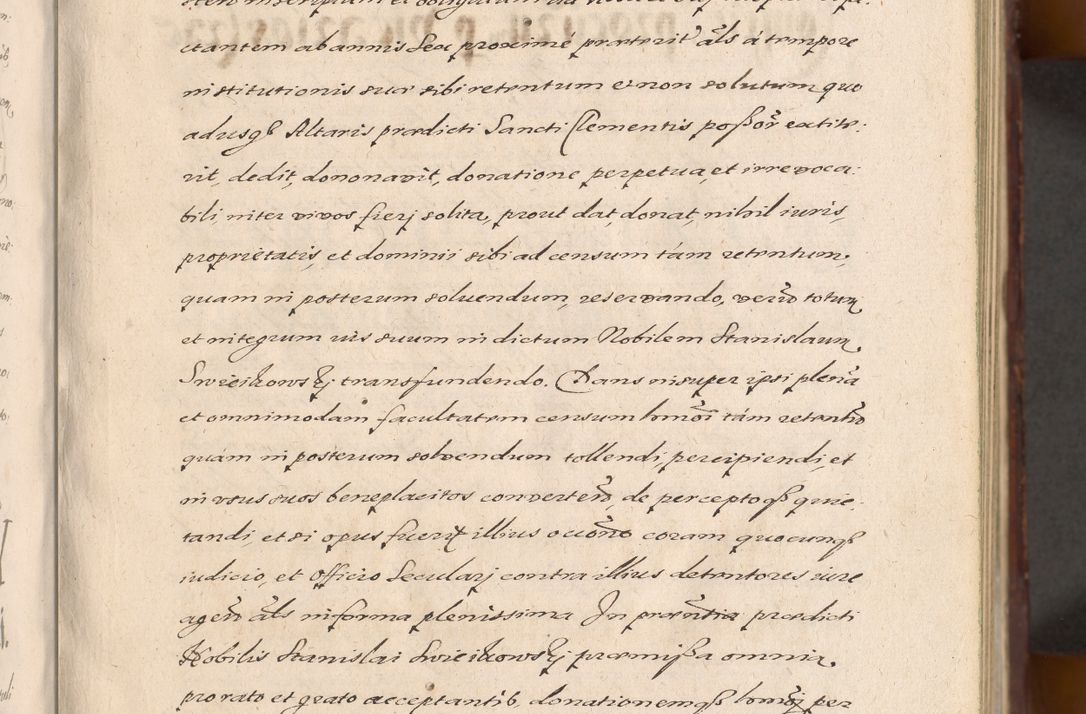 ctantem ab annis Sex proximé praeterit als á tempore
institutionis suae sibi retentum et non solutum quo
adusq Altaris praedicti Sancti Clementis poßor extite:
rit, dedit, dononavit, donatione perpetua, et irrevoca:
bili, inter vivos fierj solita, prout dat, donat, nihil iuris,
proprietatis, et dominii sibi ad censum tám retentum,
quam in posterum soluendum, reservando, vero totum
et integrum ius suum in dictum Nobilem Stanislaum
Swieikowskj transfundendo. Dans insuper ipsi plena
et omnimodam facultatem censum homoi tám retento
quám in posterum solvendum tollendi, percipiendi, et
in usus suos beneplacitos convertend, de perceptoq quie:
tandi, et si opus fuerit illius ocono coram quocunq
iudicio, et Officio Secularj contra illius detentores iure
agend als in forma plenissima In praesentia praedicti
Nobilis Stanislai Swieikowskj praemißa omnia,
pro rato et grato acceptantis, donationemq homoj per